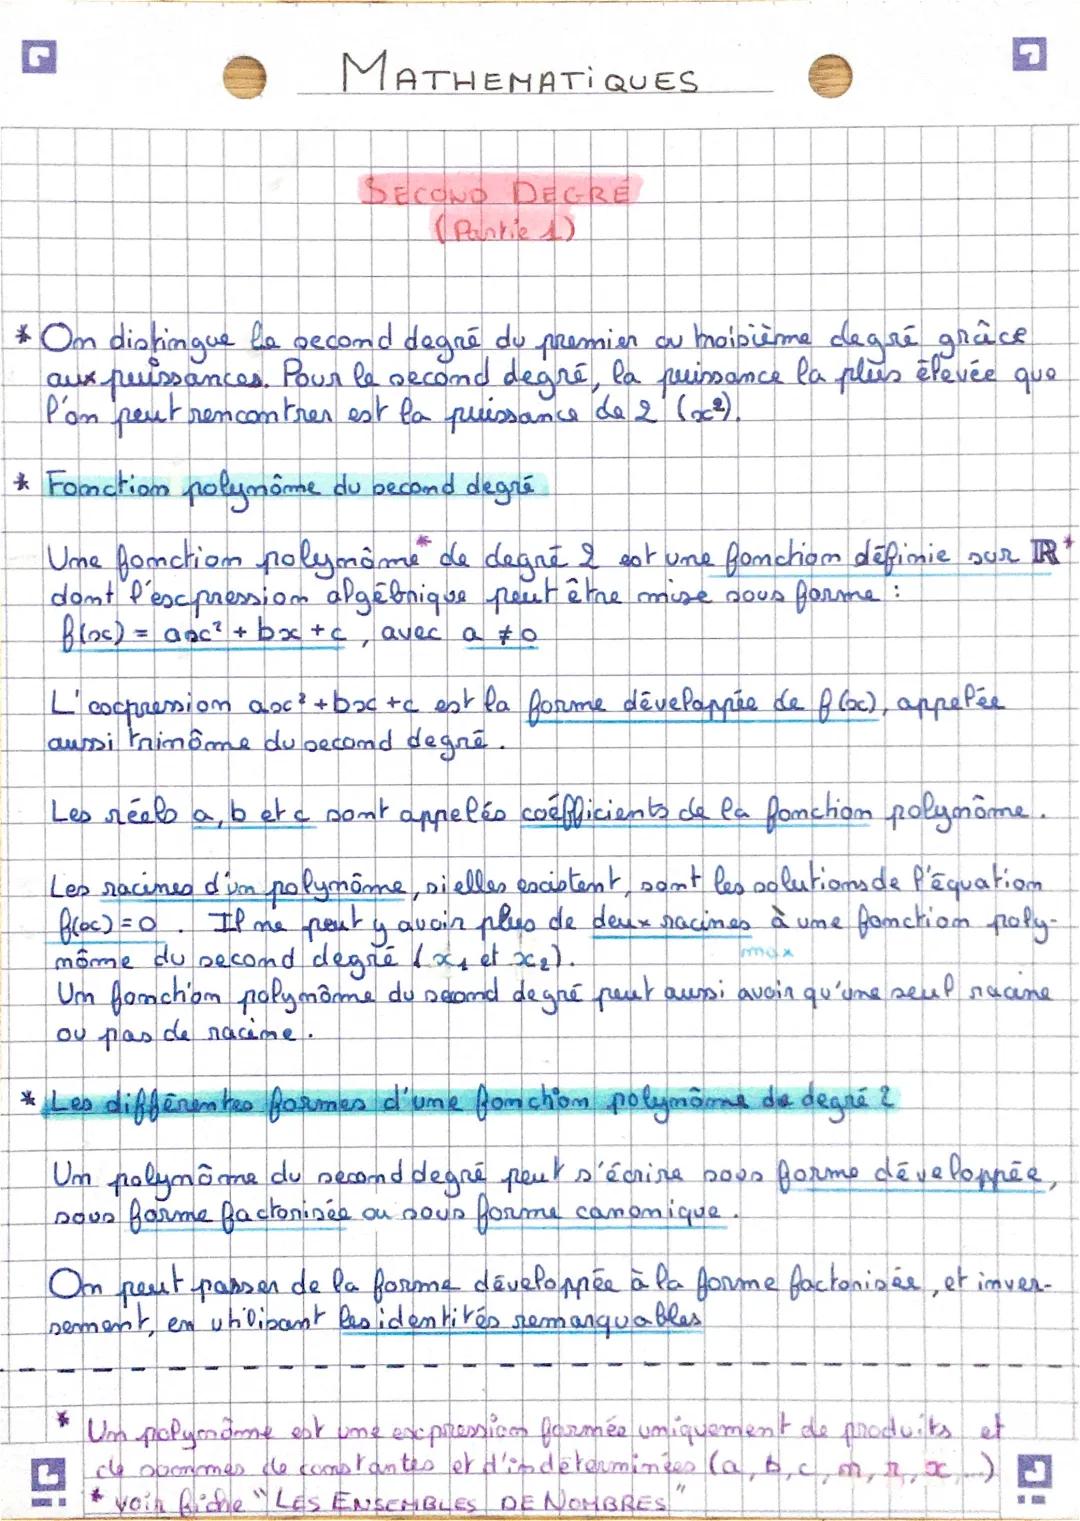 MATHEMATIQUES
SECOND DEGRÉ
(Partie 1)
* On distingue le second degré du premier ou troisième degré grâce
aux puissances. Pour le second degré, la puissance la plus élevée que
l'on peut rencontrer est la puissance de 2 (x²).
* Fonction polynôme du second degré
Une fonction polynôme* de degré 2 est une fonction définie sur ℝ*
dont l'expression algébrique peut être mise sous forme :
f(x) = ax² + bx + c, avec a ≠ 0
L'expression ax² + bx + c est la forme développée de f(x), appelée
aussi trinôme du second degré.
Les réels a, b et c sont appelés coéfficients de la fonction polynôme.
Les racines d'un polynôme, si elles existent, sont les solutions de l'équation
f(x) = 0. Il ne peut y avoir plus de deux racines à une fonction poly-
max
nôme du second degré (x₁ et x₂).
Un fonction polynôme du second degré peut aussi avoir qu'une seul racine
ou pas de racine.
* Les différentes formes d'une fonction polynôme de degré 2
Un polynôme du second degré peut s'écrire sous forme développée,
sous forme factorisée ou sous forme canonique.
On peut passer de la forme développée à la forme factorisée, et inver-
sement, en utilisant les identités remarquables
* Un polynôme est une expression formée uniquement de produits et
de sommes de constantes et d'indéterminées (a, b, c, m, n, x, ...)
* voir fiche "LES ENSEMBLES DE NOMBRES"